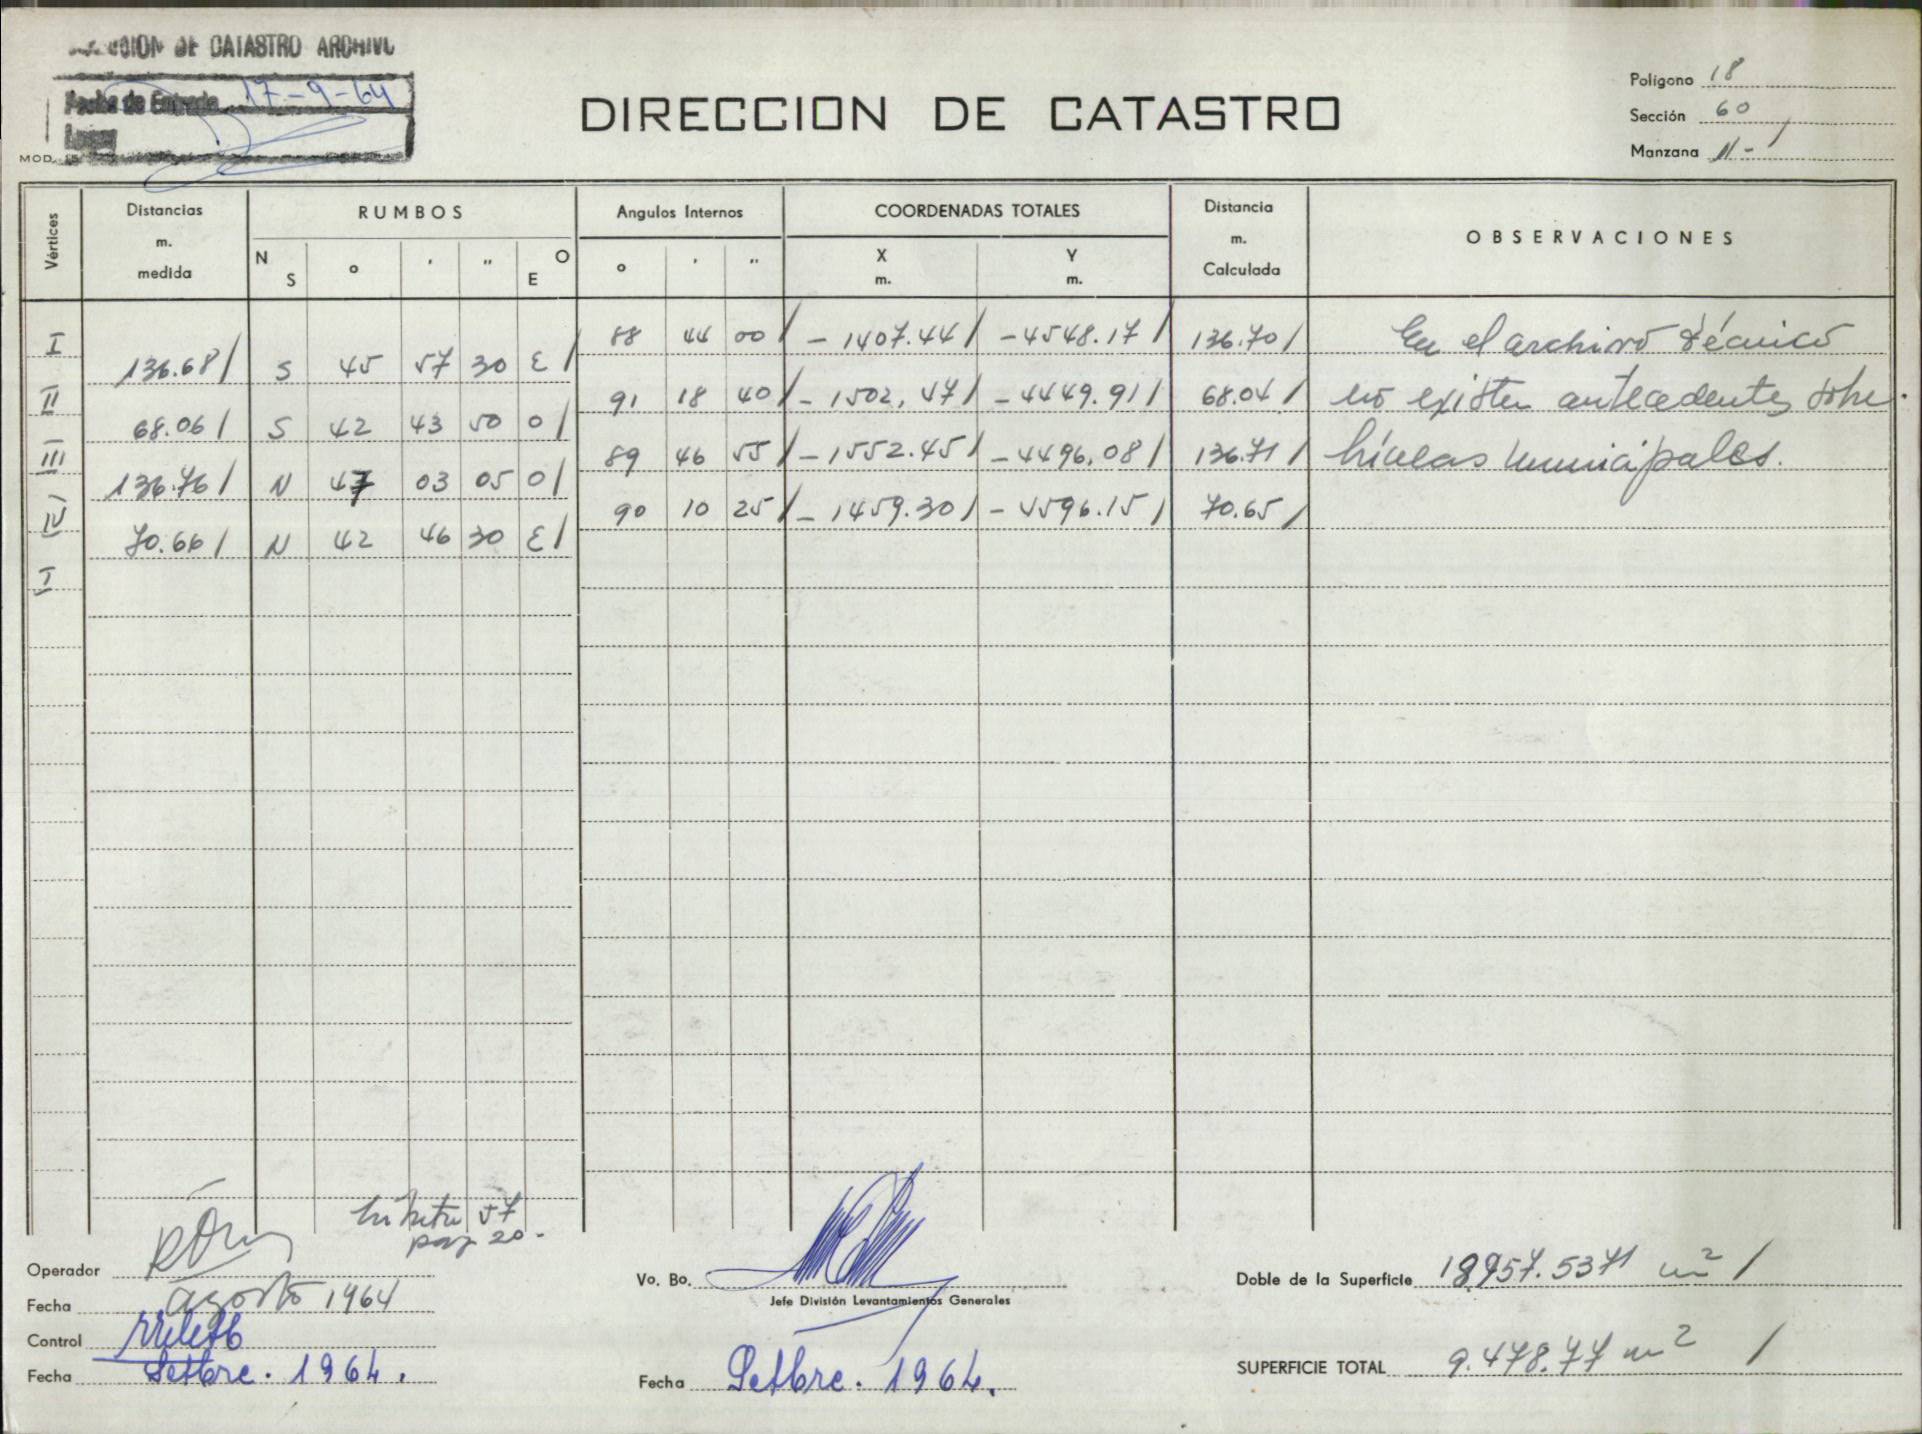 DE CATASTRO ARCHIVO
Fecha de Entrada 17-9-64
MOD.
DIRECCION DE CATASTRO
Polígono 18
Sección 60
Manzana 11-
Vértices
Distancias m. medida
RUMBOS
N S ° ' " O E
Angulos Internos
° ' "
COORDENADAS TOTALES
X m. Y m.
Distancia m. Calculada
OBSERVACIONES
I 88 44 00/ -1407.44/ -4548.17/ 136.70/ En el archivo técnico
136.68/ S 45 57 30 E/
II 91 18 40/ -1502.47/ -4449.91/ 68.04/ no existen antecedentes sobre
68.06/ S 42 43 50 O/
III 89 46 55/ -1552.45/ -4496.08/ 136.71/ líneas municipales.
136.76/ N 47 03 05 O/
IV 90 10 25/ -1459.30/ -4596.15/ 70.65/
70.66/ N 42 46 30 E/
I
57
pag 20-
Operador
Fecha agosto 1964
Control
Fecha Setbre. 1964.
Vo. Bo.
Jefe División Levantamientos Generales
Fecha Setbre. 1964.
Doble de la Superficie 18957.5371 m² /
SUPERFICIE TOTAL 9.478.77 m² /